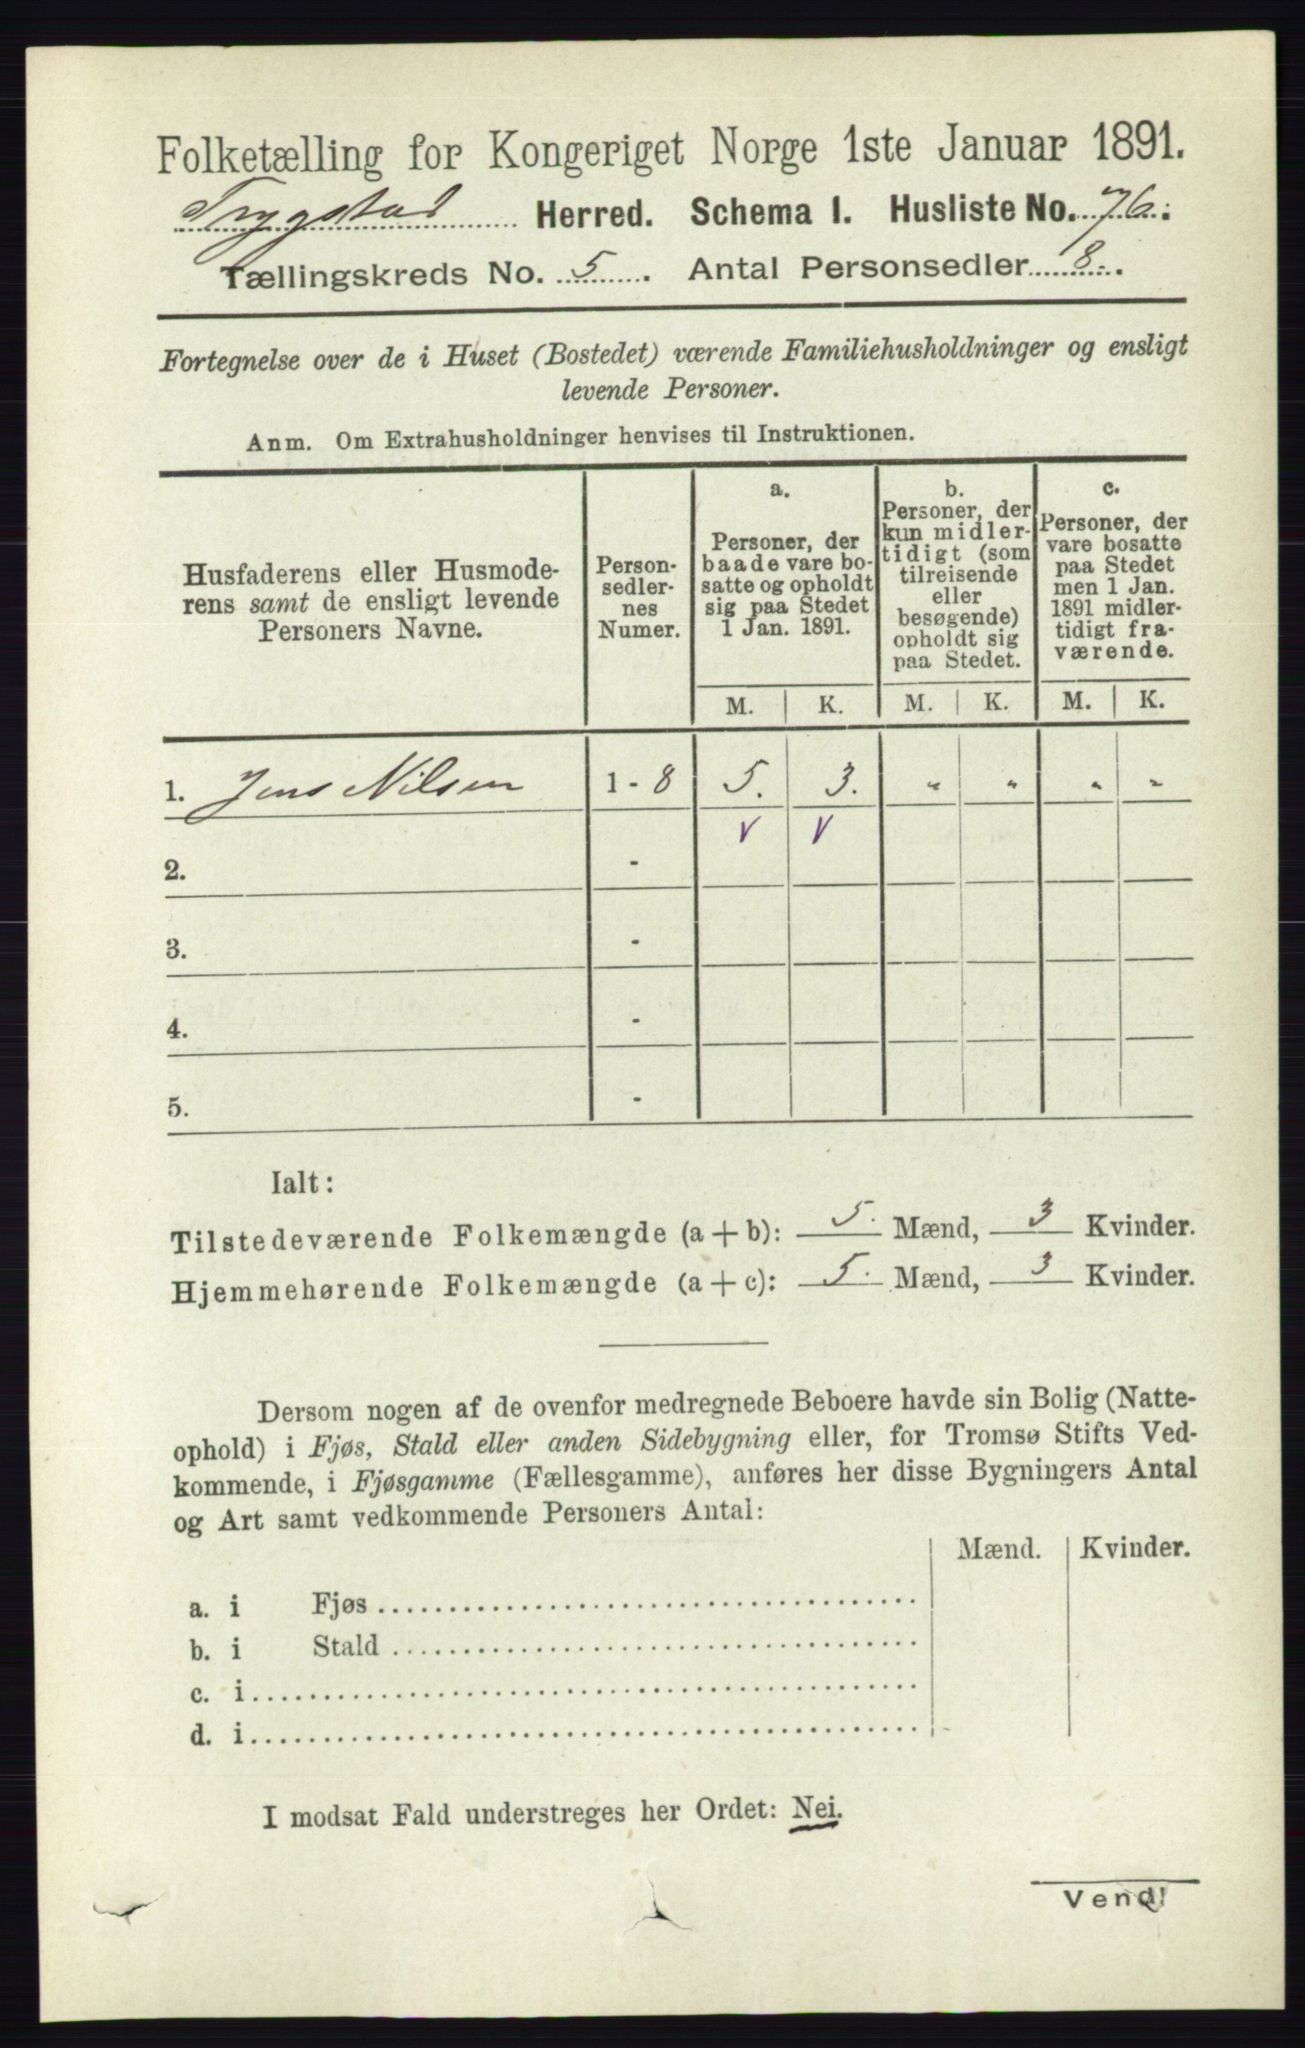 Folketælling for Kongeriget Norge 1ste Januar 1891.
Trygstad Herred. Schema I. Husliste No. 76.
Tællingskreds No. 5. Antal Personsedler 8.
Fortegnelse over de i Huset (Bostedet) værende Familiehusholdninger og ensligt
levende Personer.
Anm. Om Extrahusholdninger henvises til Instruktionen.
Husfaderens eller Husmode-
rens samt de ensligt levende
Personers Navne.
Person-
sedler-
nes
Numer.
a.
Personer, der
baade vare bo-
satte og opholdt
sig paa Stedet
1 Jan. 1891.
b.
Personer, der
kun midler-
tidigt (som
tilreisende
eller
besøgende)
opholdt sig
paa Stedet.
c.
Personer, der
vare bosatte
paa Stedet
men 1 Jan.
1891 midler-
tidigt fra-
værende.
M. K. M. K. M. K.
1. Jens Nilsen 1 - 8 5. 3. " " " "
V V
2. -
3. -
4. -
5. -
Ialt:
Tilstedeværende Folkemængde (a + b): 5. Mænd, 3 Kvinder.
Hjemmehørende Folkemængde (a + c): 5. Mænd, 3 Kvinder.
Dersom nogen af de ovenfor medregnede Beboere havde sin Bolig (Natte-
ophold) i Fjøs, Stald eller anden Sidebygning eller, for Tromsø Stifts Ved-
kommende, i Fjøsgamme (Fællesgamme), anføres her disse Bygningers Antal
og Art samt vedkommende Personers Antal:
Mænd. Kvinder.
a. i Fjøs
b. i Stald
c. i
d. i
I modsat Fald understreges her Ordet: Nei.
Vend!